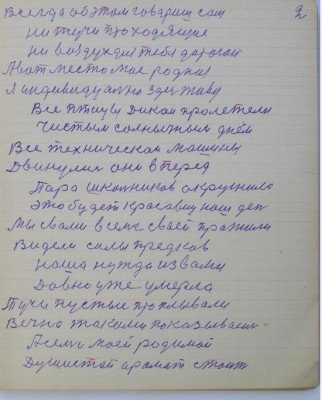 2
Всегда об этом говориш сам
Ни тучи проходящие
Ни воздух для тебя дорогой
Я вот место мое родная
Я индивидуално здес живу
Все птицы дикои пролетели
Чистым солнычным днем
Все техническои машины
Двинулис они вперед
Пара школников окружило
Это будет красавиц наш деп
Мы с вами всеме своей прожили
Видели силы предков
Наша нужда и з вами
Довно уже умерла
Тучи пустые проплывали
Вечно такими показывали
Земли моей родимой
Душистай аромат стоит